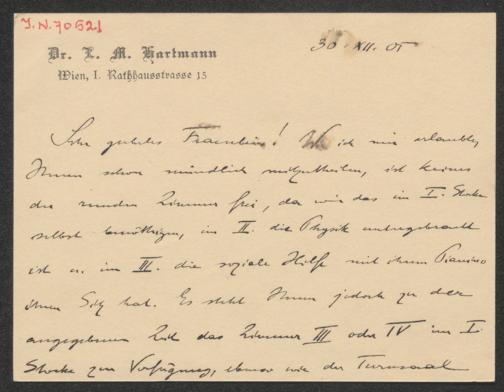 I.N. 70621
30. XII. 05
Dr. L. M. Hartmann
Wien, I. Rathhausstrasse 15
Sehr geehrtes Fräulein! Wie ich mir erlaubte,
Ihnen schon mündlich mitzutheilen, ist keines
der runden Zimmer frei, da wir das im I. Stocke
selbst benöthigen, im II. die Physik untergebracht
ist u. im III. die soziale Hilfe mit ihrem Pianino
ihren Sitz hat. Es steht Ihnen jedoch zu der
angegebenen Zeit das Zimmer III oder IV im I.
Stocke zur Verfügung, ebenso wie der Turnsaal